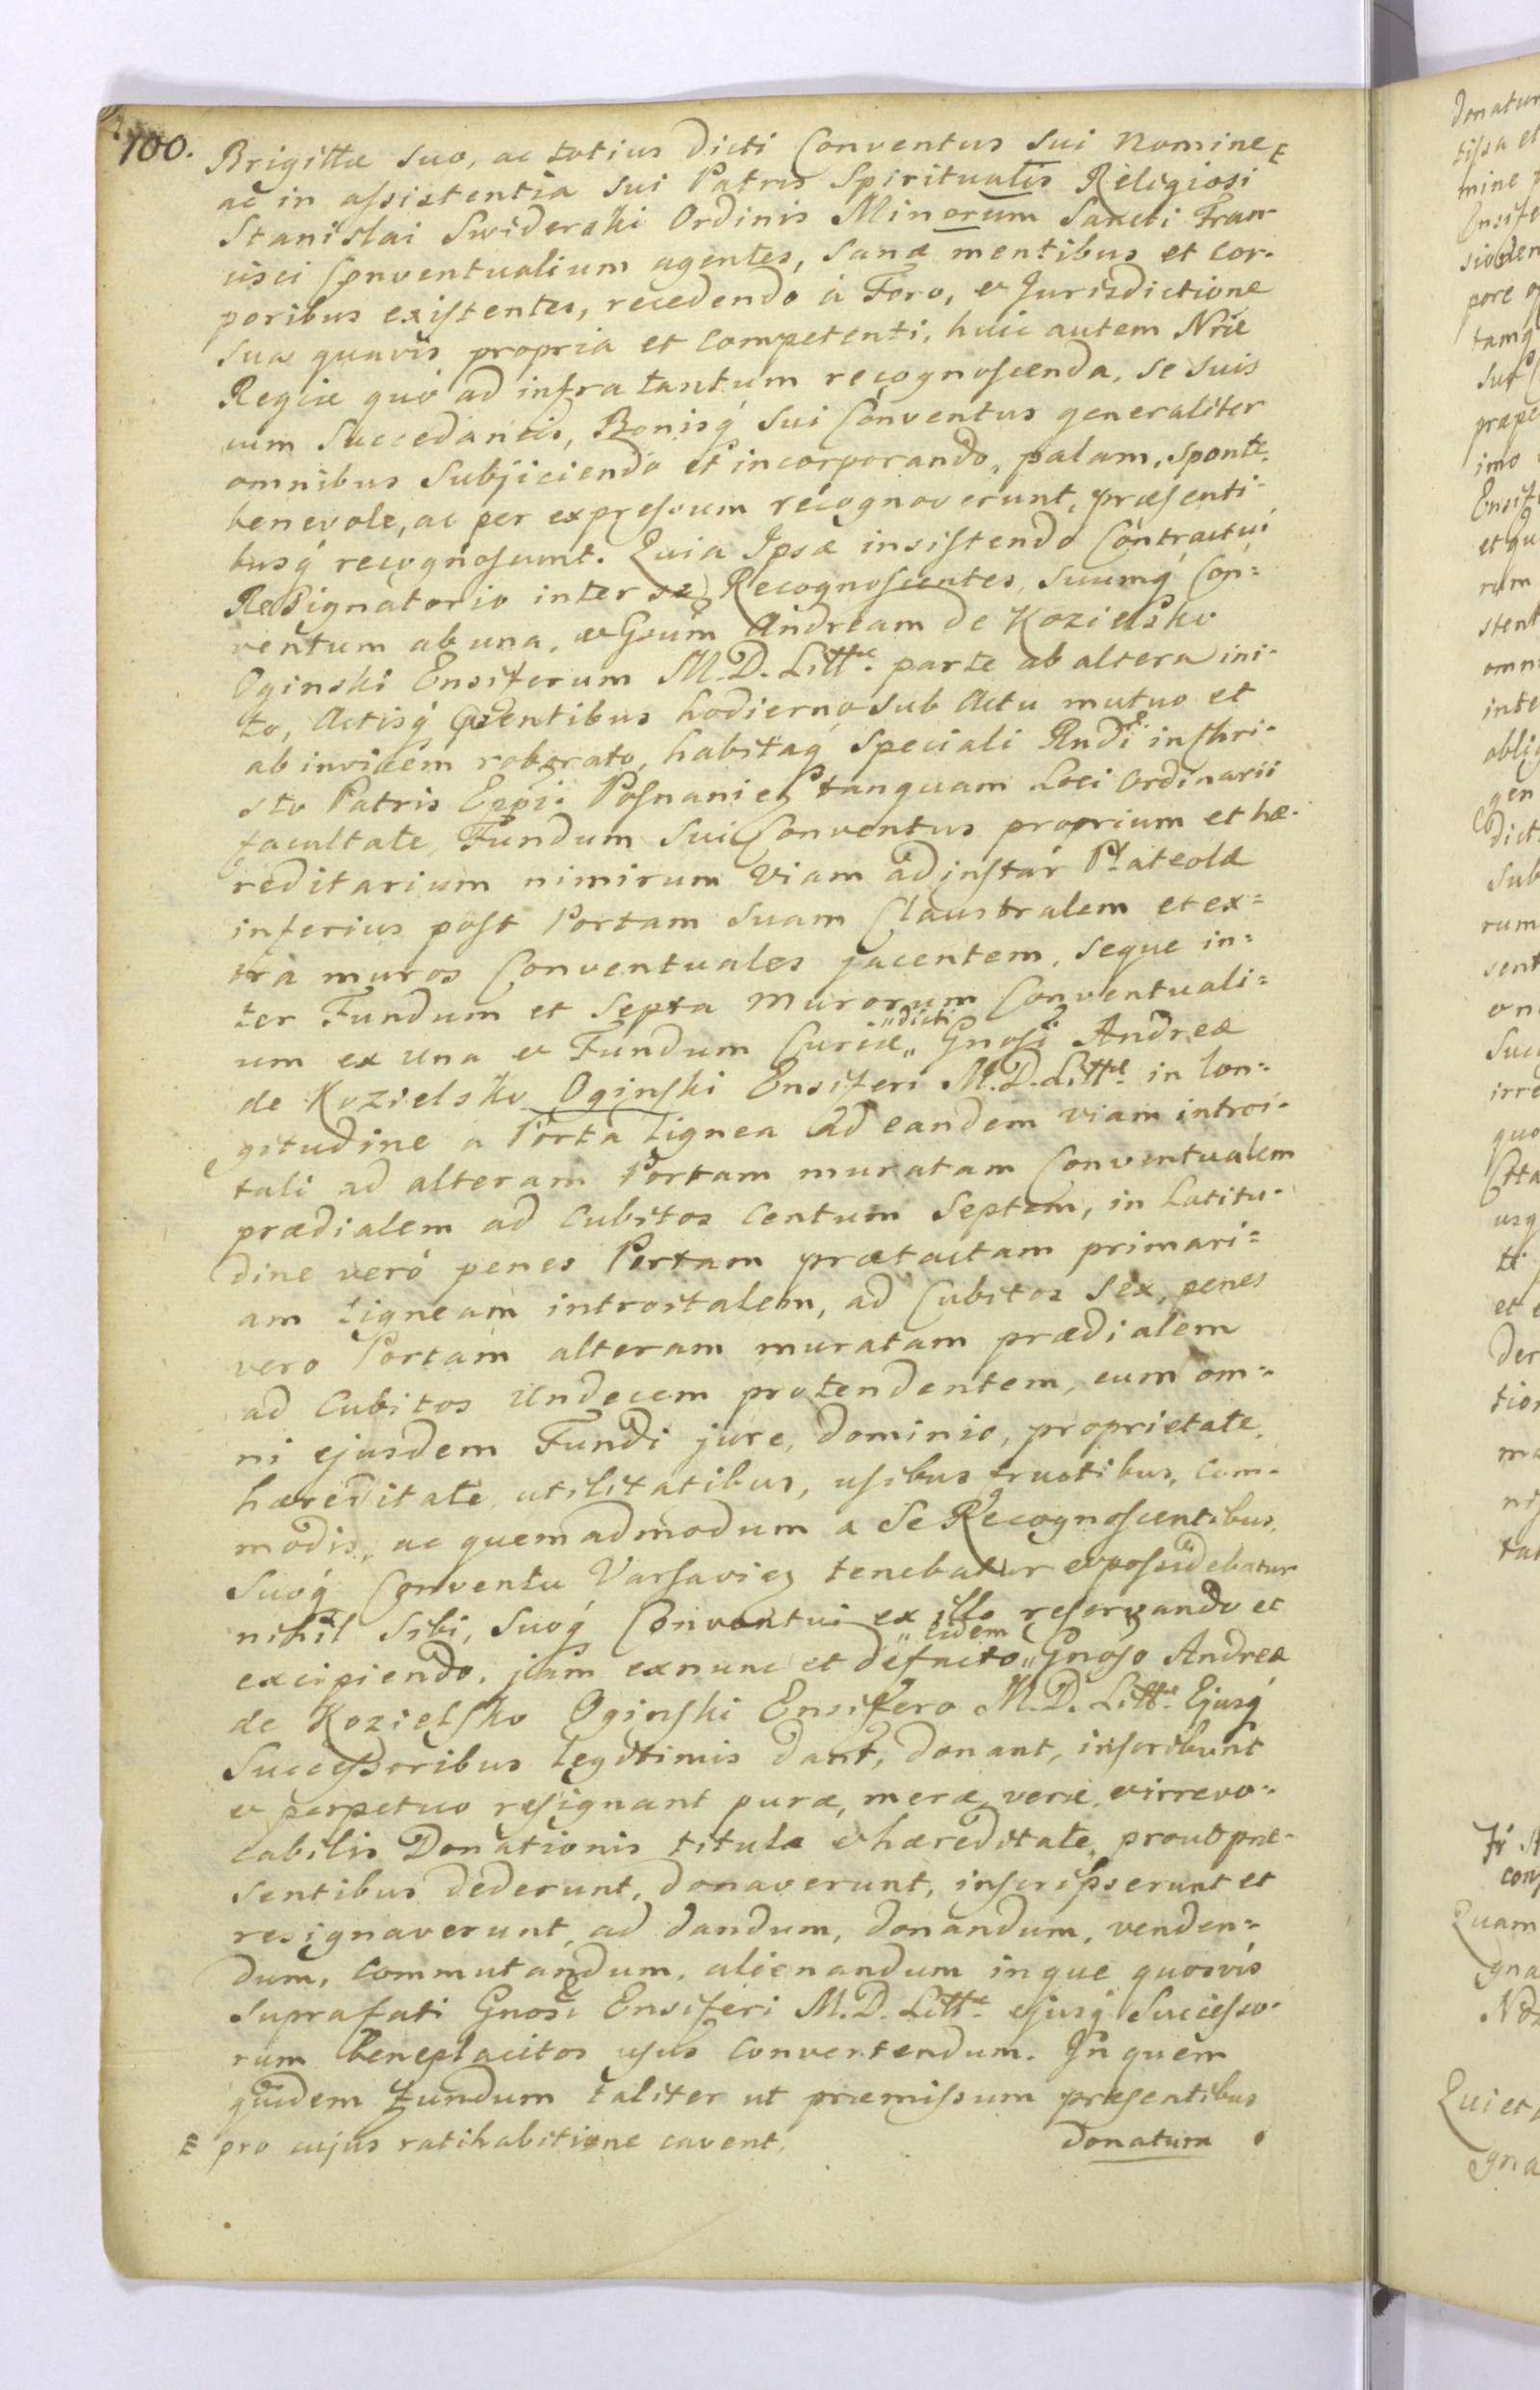 100.
Brigittæ suo, ac totius dicti Conventus sui Nomine E
ac in assistentia sui Patris Spiritualis Religiosi
Stanislai Swiderski Ordinis Minorum Sancti Fran-
cisci Conventualium agentes, sanæ mentibus et cor-
poribus existentes, recedendo à Foro, et Jurisdictione
sua quavis propria et competenti, huic autem Nræ
Regiæ quo ad infra tantum recognoscenda, se suis
cum Succedaneis, Bonisq́ sui Conventus generaliter
omnibus subjiciendo et incorporando, palam, sponte,
benevole, ac per expressum recognoverunt, præsenti-
busq́ recognoscunt. Quia Ipsæ insistendo Contractui
Resignatorio inter se Recognoscentes, suumq́ Con=
ventum ab una, et Gsum Andream de Kozielsko
Oginski Ensiferum M. D. Littæ. parte ab altera ini-
to, Actisq́ pntibus hodierno sub Actu mutuo et
ab invicem roborato, habitaq́ speciali Rndi in Chri-
sto Patris Eppi Posnanien tanquam Loci Ordinarii
facultate, Fundum sui Conventus proprium et hæ-
reditarium nimirum Viam ad instar Plateolæ
inferius post Portam suam Claustralem et ex=
tra muros Conventuales jacentem, seque in=
ter Fundum et septa Murorum Conventuali=
um ex una et Fundum Curiæ „ Gnosi Andreæ
„dicti
de Kozielsko Oginski Ensiferi M. D. Littæ in lon=
gitudine a Porta lignea ad eandem viam introi-
tali ad alteram Portam muratam Conventualem
prædialem ad Cubitos Centum Septem, in Latitu-
dine verò penes Portam prætactam primari=
am ligneam introitalem, ad Cubitos sex, penes
vero Portam alteram muratam prædialem
ad Cubitos Undecem protendentem, cum om=
ni ejusdem Fundi jure, dominio, proprietate,
hæreditate, utilitatibus, usibus fructibus, com-
modis, ac quemadmodum a se Recognoscentibus,
suoq́ Conventu Varsavien tenebatur et possidebatur
nihil sibi, suoq́ Conventui ex illo reservando et
excipiendo, jam exnunc et defacto „ Gnoso Andreæ
„eidem
de Kozielsko Oginski Ensifero M. D. Littæ. Ejusq́
Successoribus legitimis dant, donant, inscribunt
et perpetuo resignant puræ, meræ, veræ, et irrevo-
cabilis Donationis titulo et hæreditate, prout præ-
sentibus dederunt, donaverunt, inscripserunt et
resignaverunt, ad dandum, donandum, venden=
dum, commutandum, alienandum inque quosvis
suprafati Gnosi Ensiferi M. D. Littæ ejusq́ Successo-
rum beneplacitos usus convertendum. In quem
quidem Fundum taliter ut præmissum præsentibus
E pro cujus ratihabitione cavent.
donatum